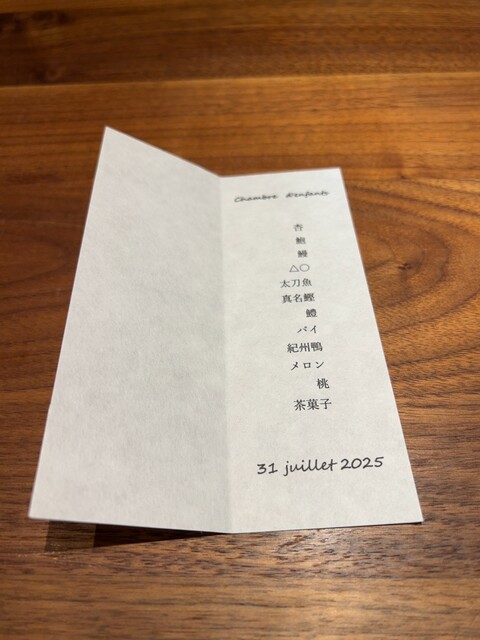 Chambre d'enfants
杏
鮑
鰻
△○
太刀魚
真名鰹
鱧
パイ
紀州鴨
メロン
桃
茶菓子
31 juillet 2025